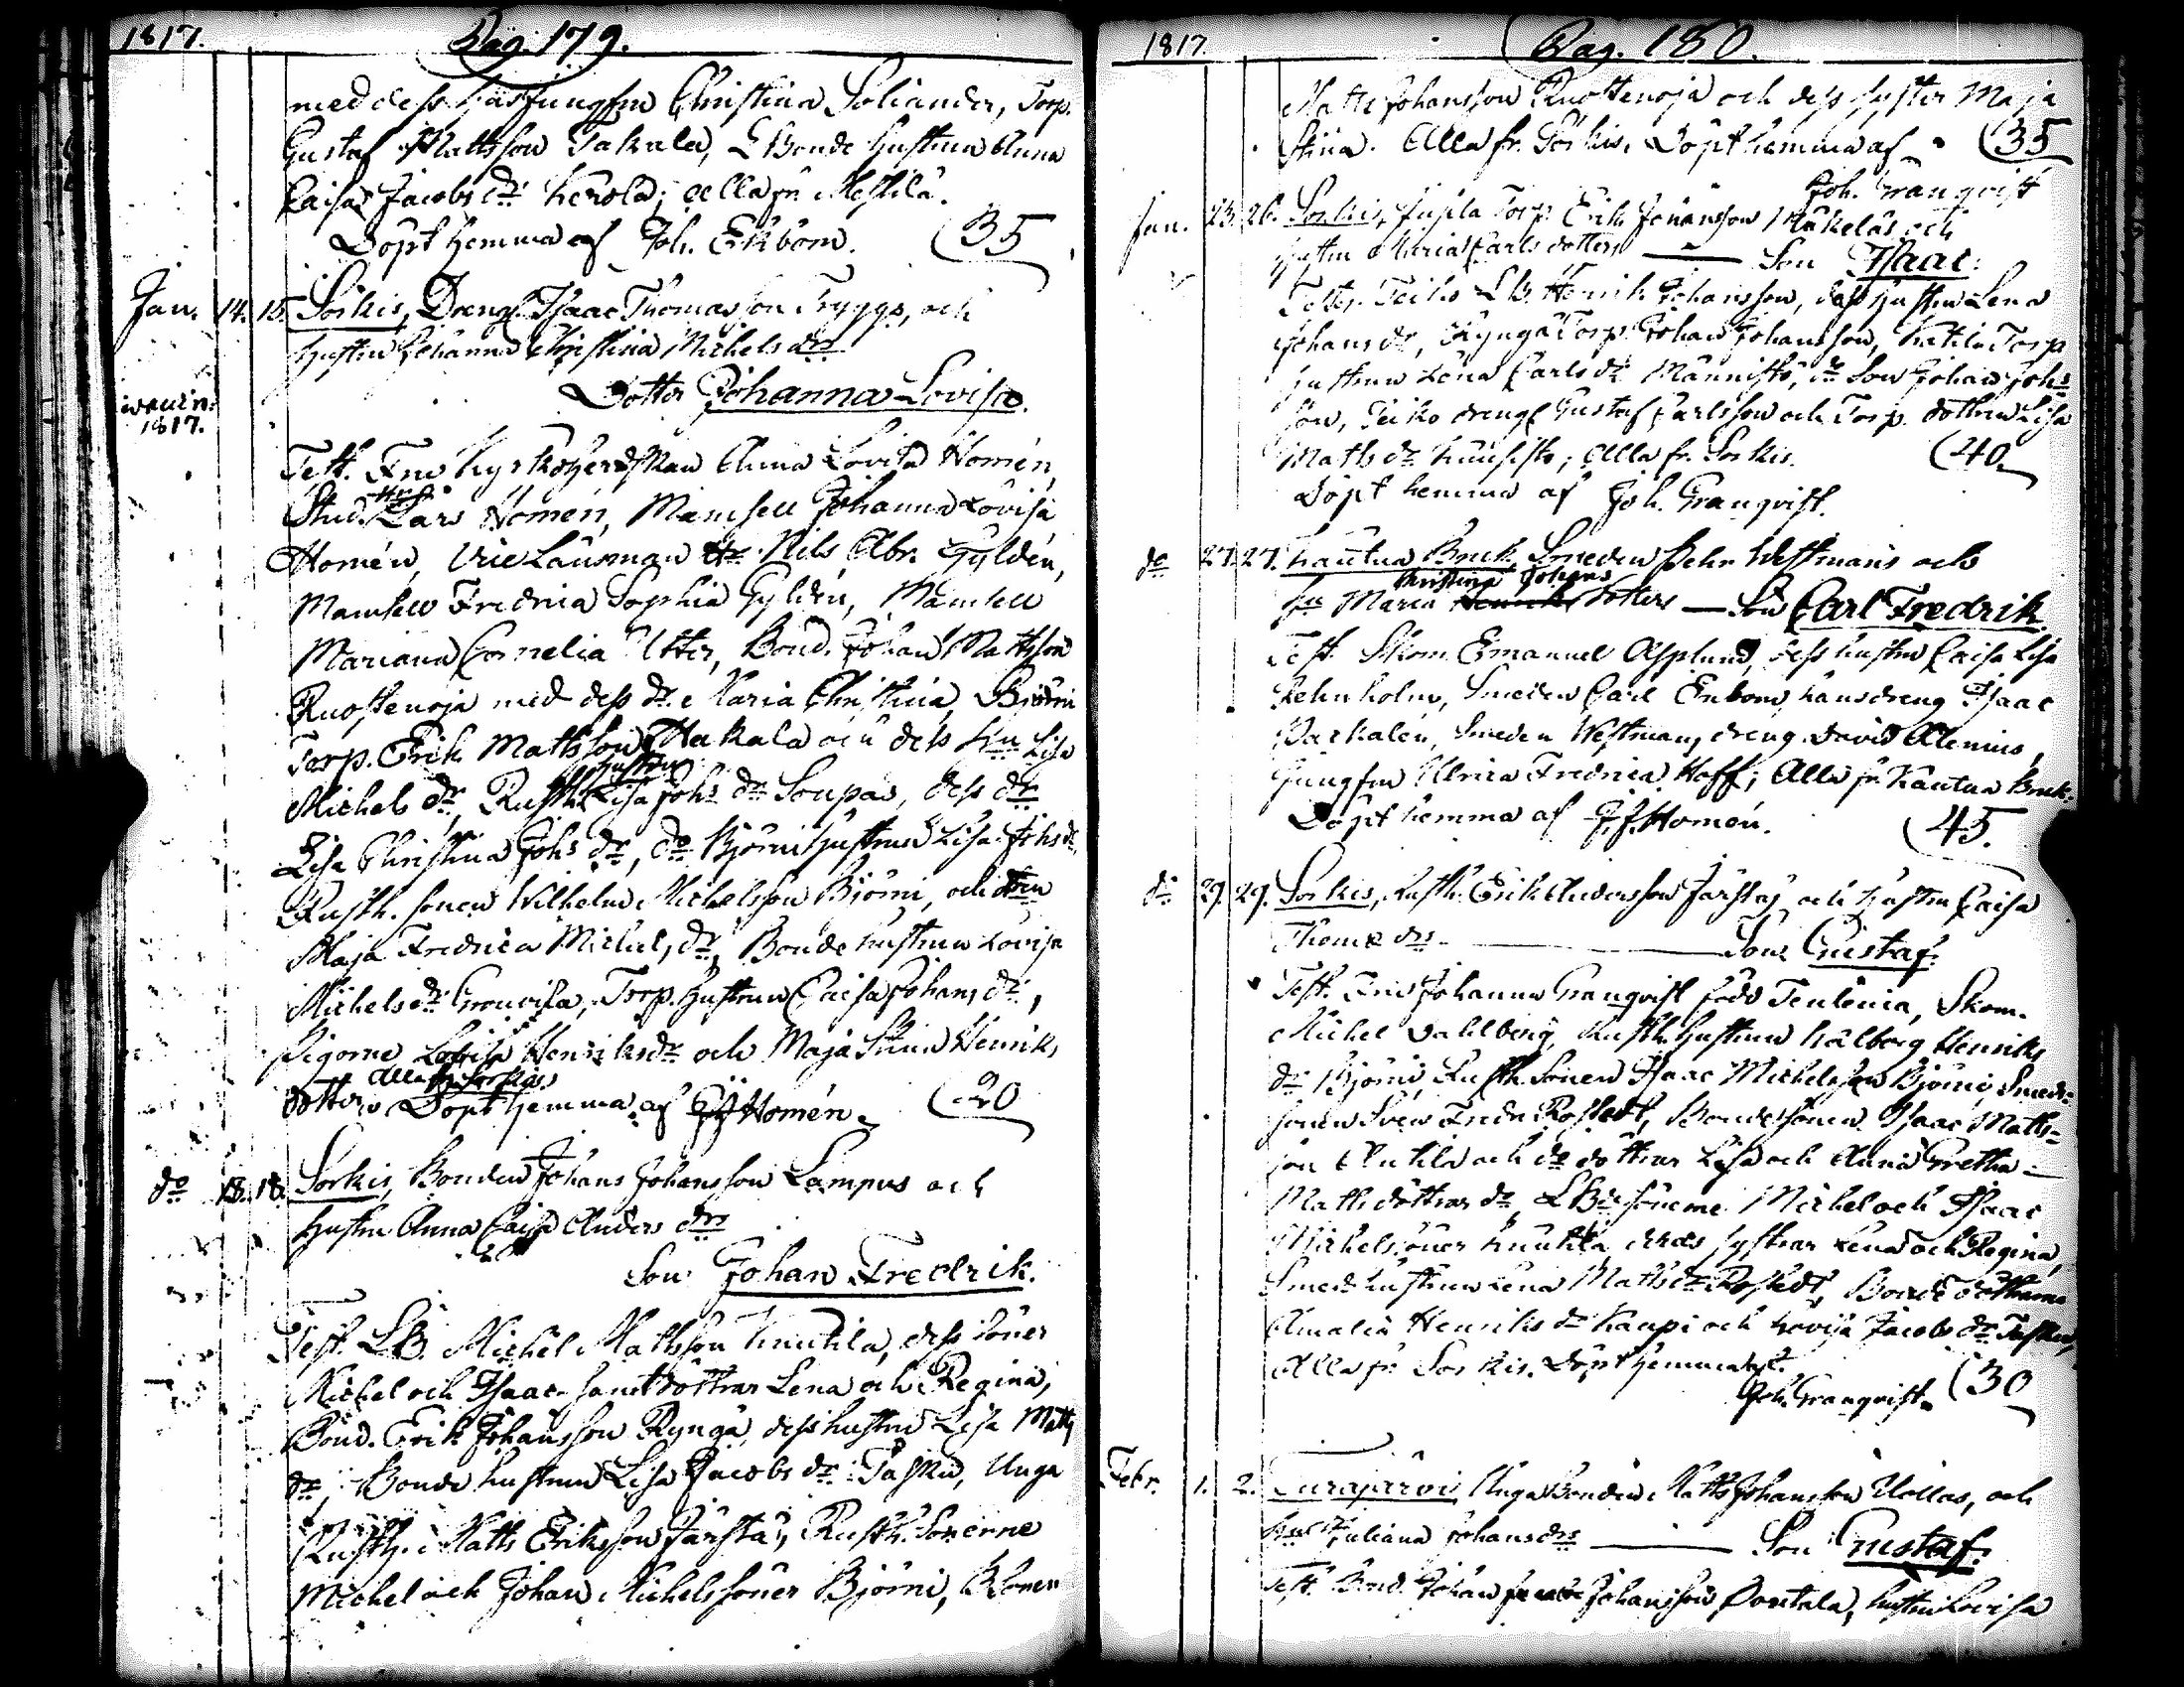 1817.
Pag. 179.
med dess Christina Soliander, Torp.
Gustaf Mattsson Takala, LBonde Hustrun Anna
Caisa Jacobs dr Herola; alla fr. Mestilä.
Döpt hemma af Joh. Ekbom. (35
Jan. 14. 15. Sorkis, Dreng. Isaac Thomasson Tryggs, och
Hustru Johanna Christina Michels dr
Dotter Johanna Lovisa.
1817.
Test. Fru Kyrkoherdskan Anna Lovisa Homén,
Stud. Hr Lars Homén, Mamsell Johanna Lovisa
Homén, Vice Länsman Hr Nils Abr. Gyldén,
Mamsell Fredrica Sophia Gyldén, Mamsell
Mariana Cornelia Utter, Bond. Johan Mattsson
Ruostenoja med dess dr Maria Christina, Björni
Torp. Erik Mattsson Hakala och dess Hu Lisa
Michels dr, Rusth. hustrun Lisa Johs dr Soupas, dess dr
Lisa Christina Johs dr, do Björni hustrun Lisa Johs dr
Rusth. sonen Wilhelm Michelsson Björni, och
Maja Fredrica Michels dr, Bonde hustrun Lovisa
Michels dr Trouvila, Torp. hustrun Caisa Johans dr,
Pigorne Lovisa Henriksdr och Maja Stina Henriks
alla fr. Sorkis
dotter, Döpt hemma af Homén. (20
do 18. 18. Sorkis, Bonden Johan Johansson Lampus och
Hustru Anna Caisa Anders dr
Son Johan Fredrik.
Test. LB. Michel Mattsson Knutila, dess söner
Michel och Isaac samt döttrar Lena och Regina,
Bond. Erik Johansson Ryngä, dess hustru Lisa Matts
dr, Bonde hustrun Lisa Jacobs dr Tasku, Unga
Rusth. Matts Eriksson Järsta, Rusth. Sonerne
Michel och Johan Michelssöner Björni,
1817.
Pag. 180.
Matts Johansson Ruostenoja och dess syster Maja
Stina. Alla fr. Sorkis. Döpt hemma af (35
Joh. Granqvist
Jan. 23. 26. Sorkis, Torp. Erik Johansson Mäkeläs och
Hustru Maria Carls dotters — Son Isaac.
Test. Teiko LB. Henrik Johansson, dess hustru Lena
Johans dr, Rynga Torp. Johan Johansson, Torp
hustrun Lena Carls dr Männistö, dr Son Johan Johs
son, Teiko dreng Gustaf Carlsson och Torp. dottren Lisa
Matts dr; Alla fr. Sorkis. (40
Döpt hemma af Joh. Granqvist.
do 27. 27. Kautua Bruk, Smeden Westmans och
Christina Johans
hu Maria dotters — Son Carl Fredrik.
Test. Skom. Emanuel Asplund, dess hustru Caisa Lisa
Lehnholm, Smeden Carl Enbom, hans dreng Isaac
Parkalén, Smeden Westman, dreng David Alenius,
Jungfrun Ulrica Fredrica Hoff; Alla fr. Kautua Bruk.
Döpt hemma af Homén. (45.
do 29. 29. Sorkis, Rusth. Erik Andersson Järstas och hustru Caisa
Thomæ drs — Son Gustaf.
Test. Fru Johanna Granqvist född Tenlenia, Skom.
Michel Dahlberg, Rusth. hustrun Walborg Henriks
dr Björni, Rusth. Sonen Isaac Michelsson Björni, Smeds
sonen Sven Fredr. Rostedt, Bondesonen Isaac Matts-
son Antila och dr döttrar Lisa och Anna Gretha
Matts döttrar do, LBde sönerne Michel och Isaac
Michelssöner Knutila, deras systrar Lena och Regina,
Smeds hustrun Lena Matts dr Rostedt, Bonde döttrarne
Amalia Henriks dr Kaupi och Lovisa Jacobs dr Tasku,
Alla fr. Sorkis. Döpt hemma af
Joh. Granqvist. (30
Febr. 1. 2. Eurajärvi Unga Bonden Matts Johansson Uollas, och
hu Juliana Johans drs — Son Gustaf.
Test. Bond. Johan Johansson Pontala, hustru Lovisa